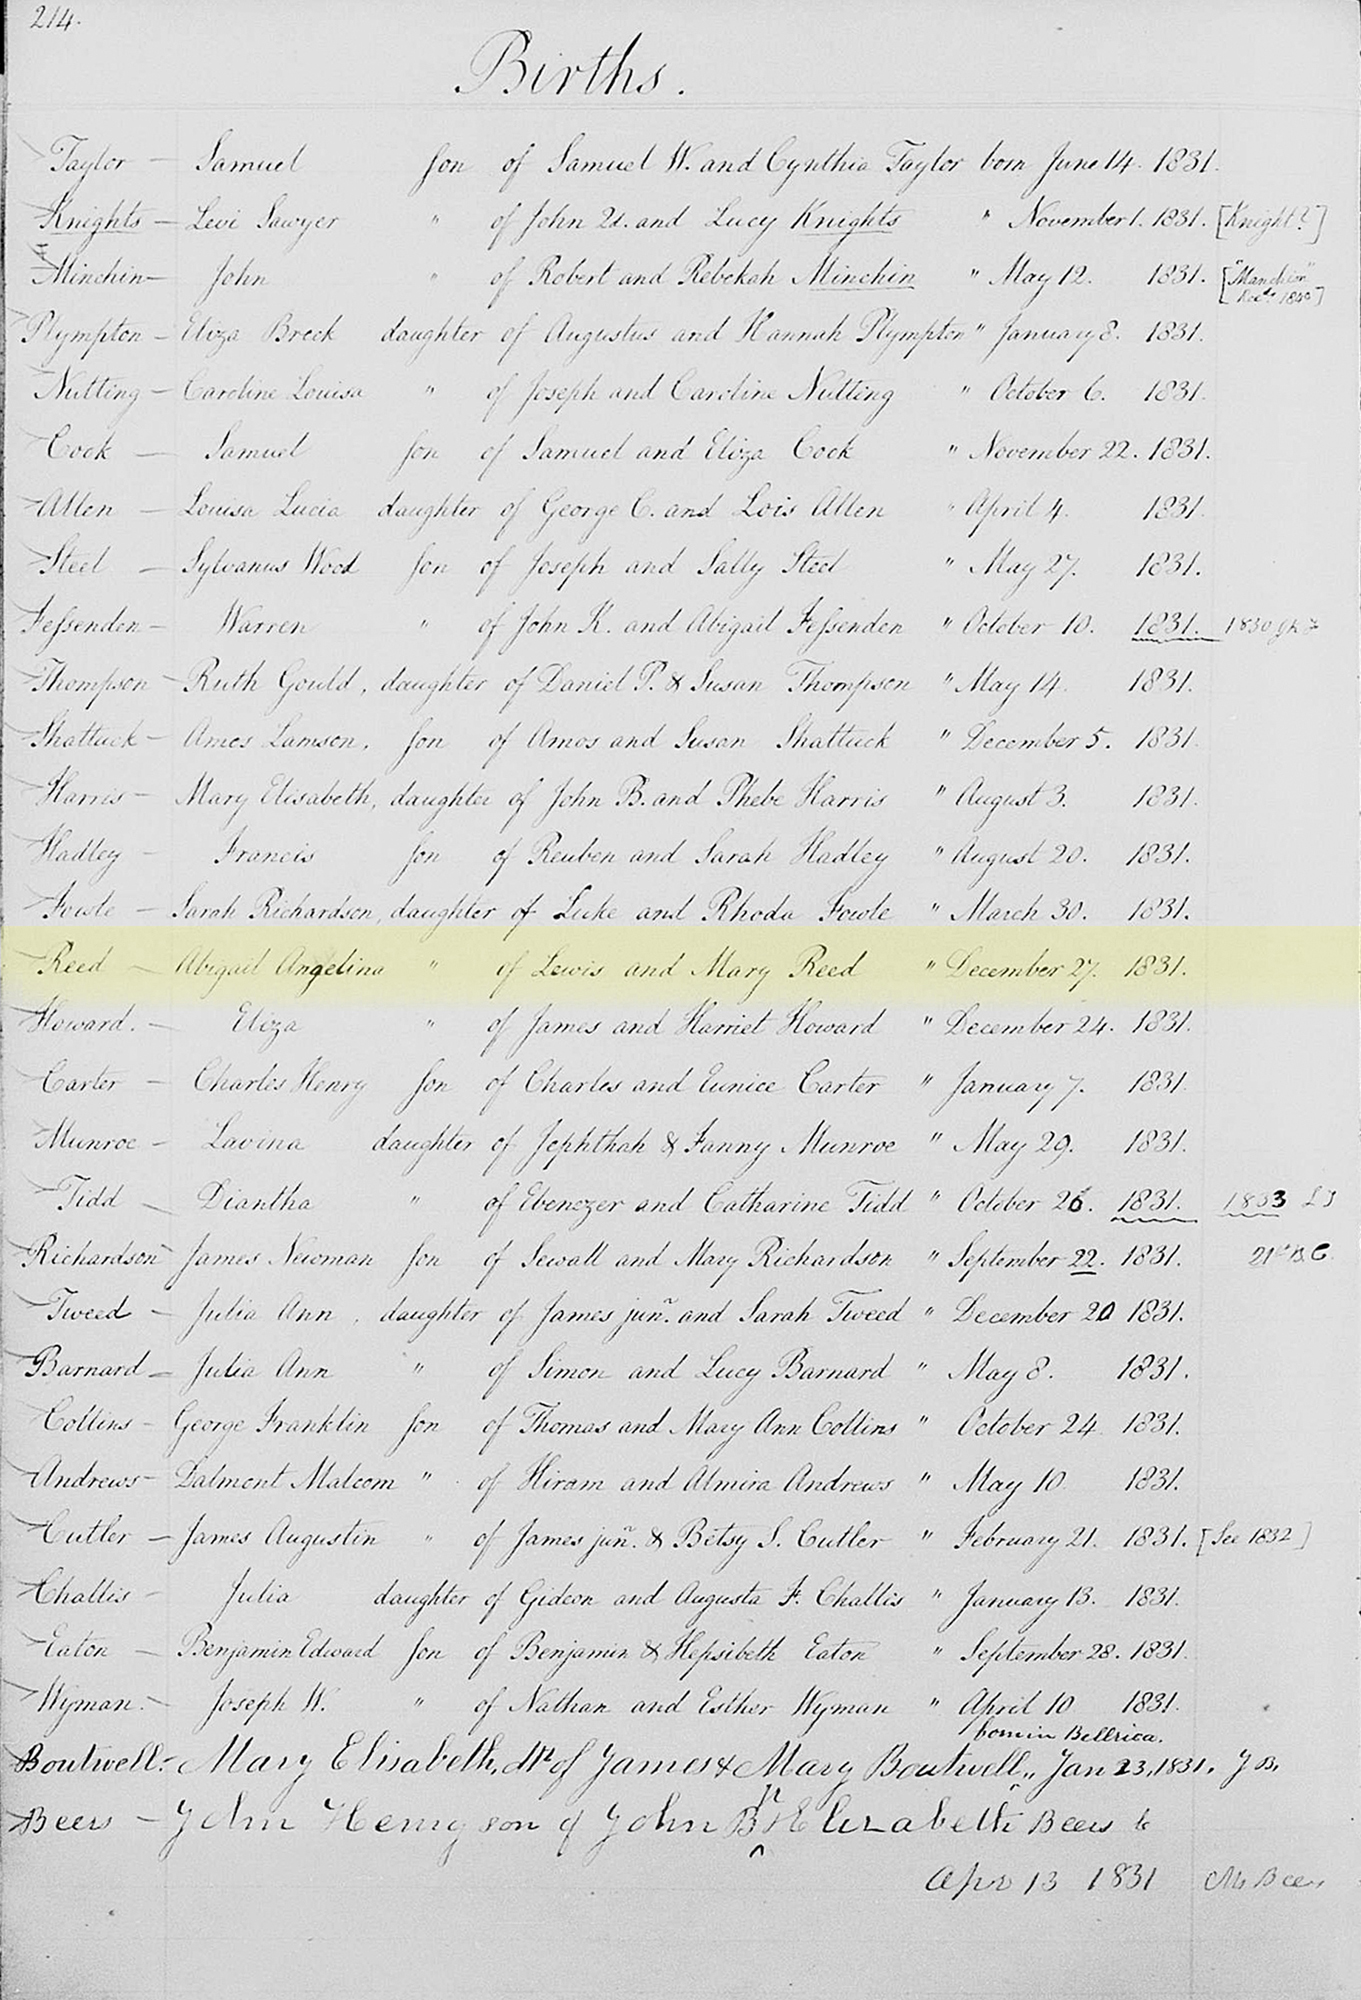 214.
Births.
Taylor — Samuel Son of Samuel W. and Cynthia Taylor born June 14. 1831.
Knights — Levi Sawyer " of John 2d. and Lucy Knights " November 1. 1831. [Knight?]
Minchin — John " of Robert and Rebekah Minchin " May 12. 1831. ["Manchin" Recds 1840]
Plympton — Eliza Breck daughter of Augustus and Hannah Plympton " January 8. 1831.
Nutting — Caroline Louisa " of Joseph and Caroline Nutting " October 6. 1831.
Cook — Samuel Son of Samuel and Eliza Cook " November 22. 1831.
Allen — Louisa Lucia daughter of George C. and Lois Allen " April 4. 1831.
Steel — Sylvanus Wood Son of Joseph and Sally Steel " May 27. 1831.
Fessenden — Warren " of John K. and Abigail Fessenden " October 10. 1831. 1830
Thompson — Ruth Gould, daughter of Daniel P. & Susan Thompson " May 14. 1831.
Shattuck — Amos Lamson, Son of Amos and Susan Shattuck " December 5. 1831.
Harris — Mary Elisabeth, daughter of John B. and Phebe Harris " August 3. 1831.
Hadley — Francis Son of Reuben and Sarah Hadley " August 20. 1831.
Fowle — Sarah Richardson, daughter of Luke and Rhoda Fowle " March 30. 1831.
Reed — Abigail Angelina " of Lewis and Mary Reed " December 27. 1831.
Howard. — Eliza " of James and Harriet Howard " December 24. 1831.
Carter — Charles Henry Son of Charles and Eunice Carter " January 7. 1831.
Munroe — Lavina daughter of Jephthah & Fanny Munroe " May 29. 1831.
Tidd — Diantha " of Ebenezer and Catharine Tidd " October 26. 1831. 1833
Richardson — James Newman Son of Sewall and Mary Richardson " September 22. 1831. 21st B.C.
Tweed — Julia Ann, daughter of James junr. and Sarah Tweed " December 20 1831.
Barnard — Julia Ann " of Simon and Lucy Barnard " May 8. 1831.
Collins — George Franklin Son of Thomas and Mary Ann Collins " October 24 1831.
Andrews — Dalmont Malcom " of Hiram and Almira Andrews " May 10 1831.
Cutler — James Augustin " of James junr. & Betsy S. Cutler " February 21. 1831. [See 1832]
Challis — Julia daughter of Gideon and Augusta F. Challis " January 13. 1831.
Eaton — Benjamin Edward Son of Benjamin & Hepsibeth Eaton " September 28. 1831.
Wyman. — Joseph W. " of Nathan and Esther Wyman " April 10 1831.
born in Bellrica.
Boutwell. — Mary Elisabeth, dtr of James & Mary Boutwell,, Jan 23, 1831. J B.
Beers — John Henry son of John B & Elizabeth Beers b
Apr 13 1831 Mr Beers